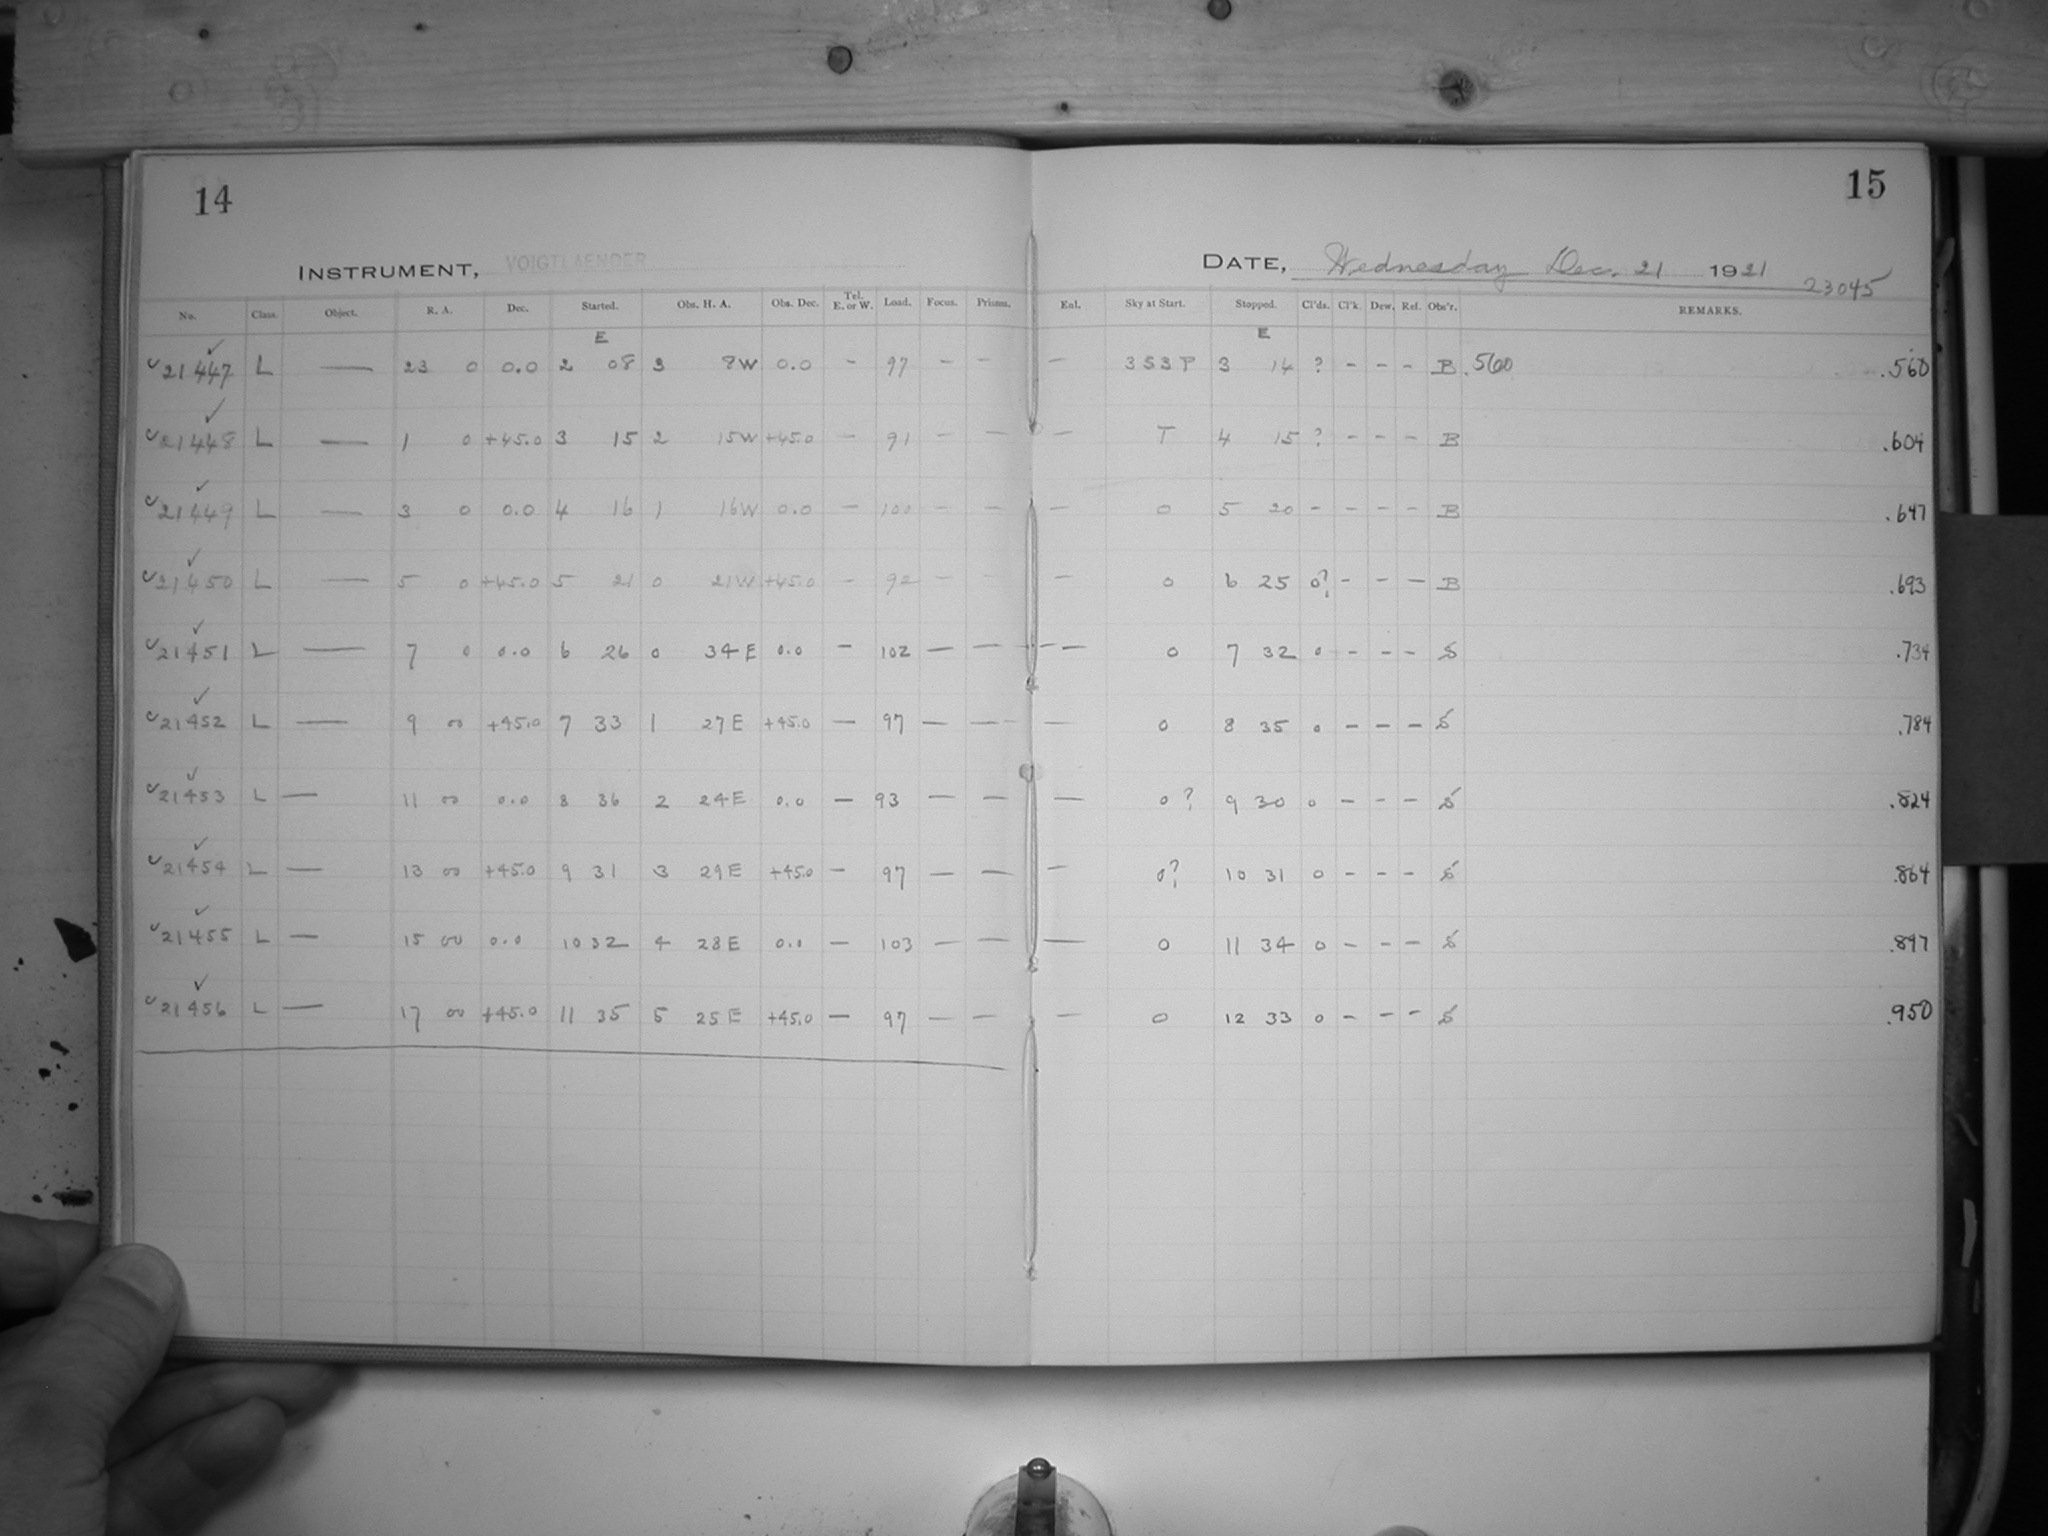 14
15
INSTRUMENT, VOIGTLAENDER
DATE, Wednesday Dec. 21 1921
23045
No. Class. Object. R. A. Dec. Started. Obs. H. A. Obs. Dec. Tel. E. or W. Load. Focus. Prisms. Enl. Sky at Start. Stopped. Cl'ds. Cl'k. Dew. Ref. Obs'r. REMARKS.
E E
21447 L — 23 0 0.0 2 08 3 8W 0.0 - 97 - - — 3S3P 3 14 ? - - - B .560 .560
21448 L — 1 0 +45.0 3 15 2 15W +45.0 - 91 - - — T 4 15 ? - - - B .604
21449 L — 3 0 0.0 4 16 1 16W 0.0 - 100 - - — 0 5 20 - - - - B .647
21450 L — 5 0 +45.0 5 21 0 21W +45.0 - 92 - - — 0 6 25 0? - - - B .693
21451 L — 7 0 0.0 6 26 0 34E 0.0 - 102 — — — 0 7 32 0 - - - S .734
21452 L — 9 00 +45.0 7 33 1 27E +45.0 — 97 — — — 0 8 35 0 - - - S .784
21453 L — 11 00 0.0 8 36 2 24E 0.0 — 93 — — — 0? 9 30 0 - - - S .824
21454 L — 13 00 +45.0 9 31 3 29E +45.0 — 97 — — — 0? 10 31 0 - - - S .864
21455 L — 15 00 0.0 10 32 4 28E 0.0 — 103 — — — 0 11 34 0 - - - S .897
21456 L — 17 00 +45.0 11 35 5 25E +45.0 — 97 — — — 0 12 33 0 - - - S .950